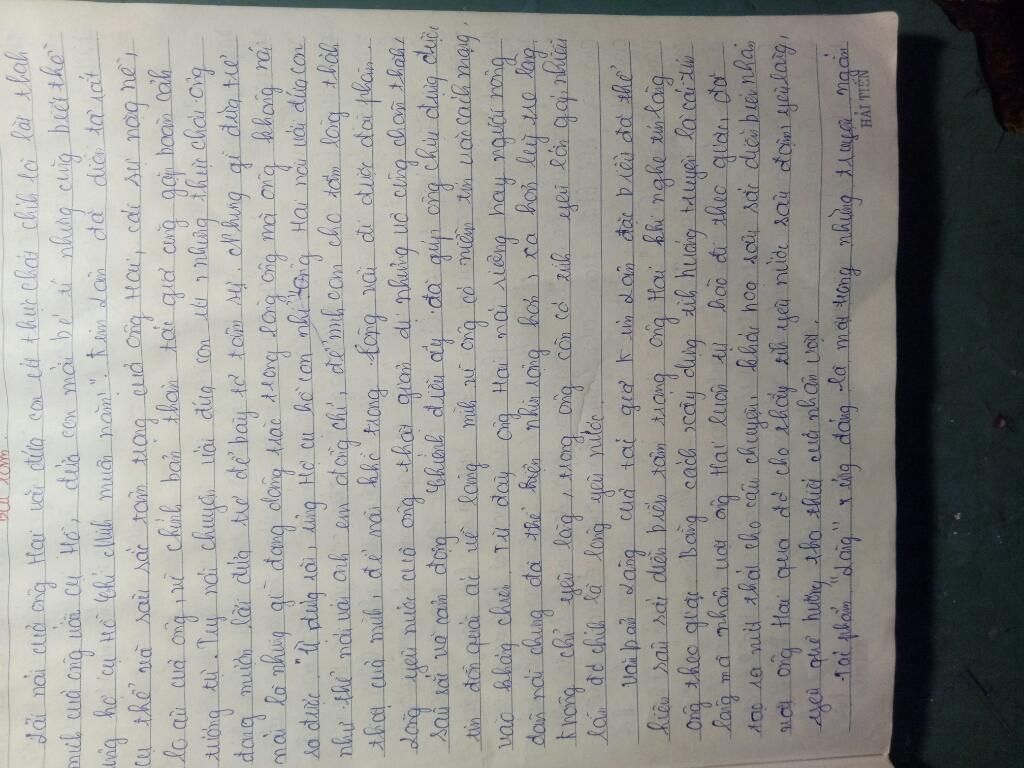 Lời nói của ông Hai với đứa con cu thực chất chính là lời tâm
mình của ông với cụ Hồ, đứa con mới bé tí nhưng cũng biết thề
ủng hộ cụ Hồ Chí Minh muôn năm". Kim Lân đã diễn tả rất
cụ thể và sâu sắc tâm trạng của ông Hai, cái sự nặng nề,
lo âu của ông, vì chính bản thân tác giả cũng gặp hoàn cảnh
tương tự. Tuy nói chuyện với đứa con út nhưng thực chất ông
đang muốn lời đứa trẻ để bày tỏ tâm sự. Những gì đứa trẻ
nói là những gì đang dâng trào trong lòng ông mà ông không nói
ra được. "Ừ đúng rồi, ủng hộ cụ Hồ con nhỉ" ông Hai nói với đứa con
như thế nói với anh em đồng chí, để mình oan cho tấm lòng thành
thật của mình, để nỗi khổ trong lòng nói đi được đôi phần.
Lòng yêu nước của ông thật giản dị nhưng vô cùng chân thành,
sâu sắc và cảm động. Chính điều ấy đã giúp ông chịu đựng được
tin đồn quái ác về làng mình vì ông có niềm tin vào cách mạng,
vào kháng chiến. Từ đây ông Hai nói riêng hay người nông
dân nói chung đã thể hiện nhìn rộng hơn, xa hơn luỹ tre làng.
Không chỉ yêu làng, trong ông còn có tình yêu lớn gấp nhiều
lần đó chính là lòng yêu nước.
Văn bản Làng của tác giả Kim Lân đã biểu đạt thể
hiện sâu sắc diễn biến tâm trạng ông Hai khi nghe tin làng
ông theo giặc. Bằng cách xây dựng tình huống truyện là cái tin
làng mà nhân vật ông Hai luôn tự hào đi theo giặc, đã
tạo ra nút thắt cho câu chuyện, khắc hoạ sâu sắc diễn biến nhân
vật ông Hai qua đó cho thấy tình yêu nước sâu đậm, yêu làng,
yêu quê hương tha thiết của nhân vật.
Tác phẩm "Làng" xứng đáng là một trong những truyện ngắn
HẢI TIẾN